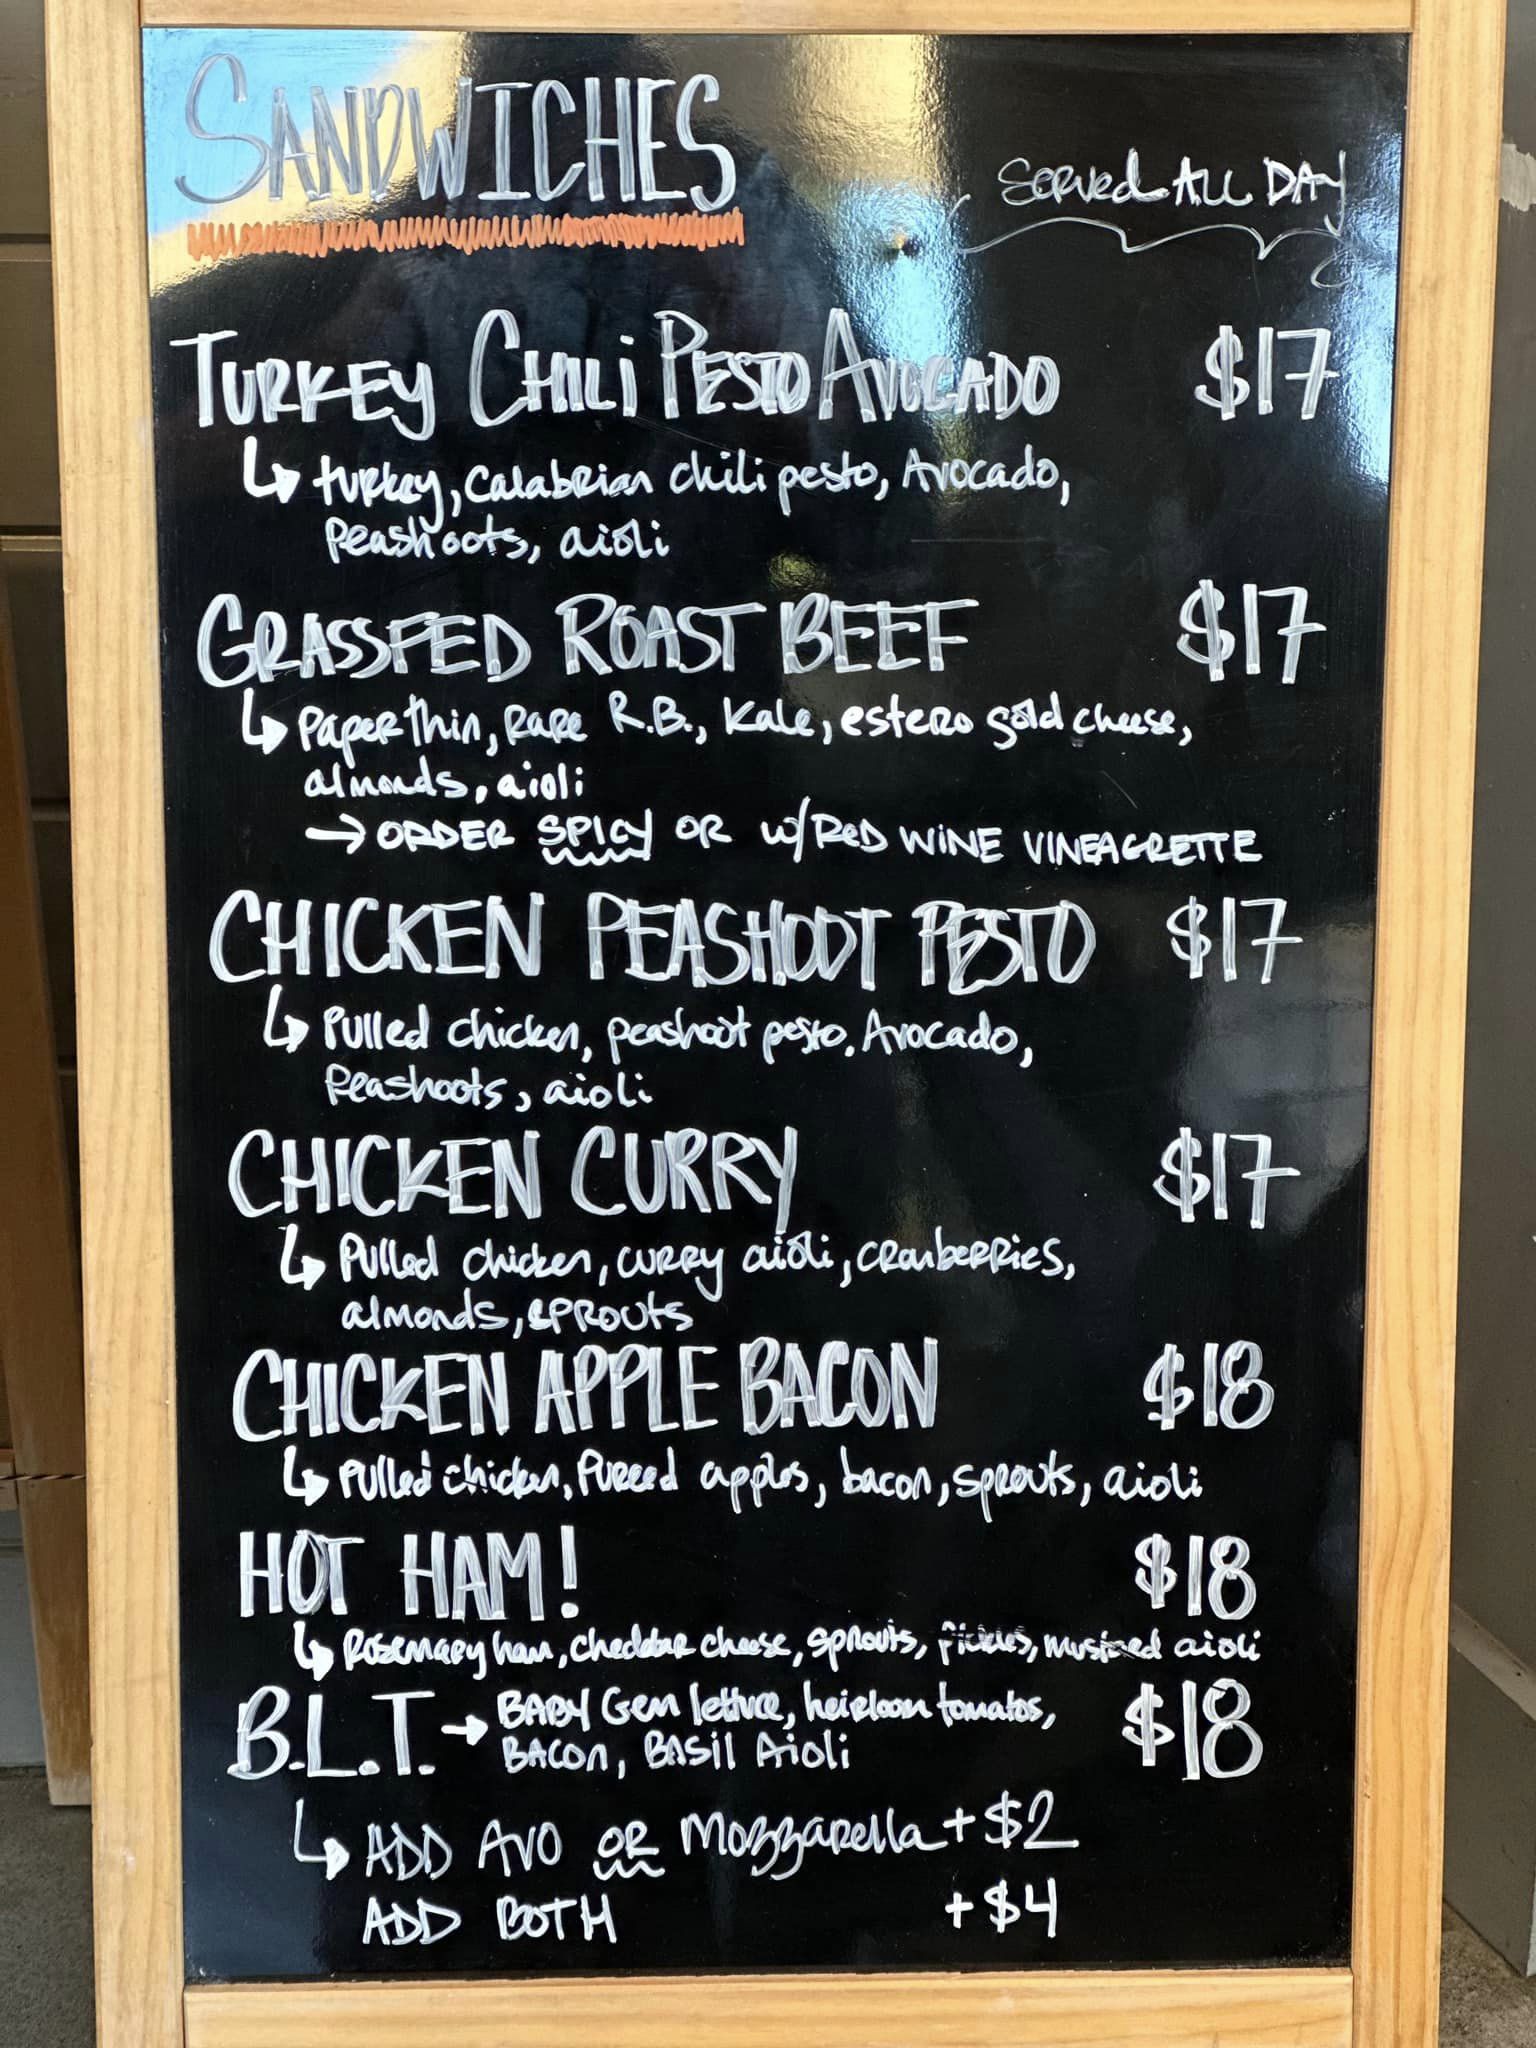 SANDWICHES
Served ALL DAY
TURKEY CHILI PESTO AVOCADO $17
turkey, calabrian chili pesto, Avocado,
Peashoots, aioli
GRASSFED ROAST BEEF $17
Paper thin, rare R.B., kale, estero gold cheese,
almonds, aioli
→ ORDER SPICY OR w/RED WINE VINEAGRETTE
CHICKEN PEASHOOT PESTO $17
Pulled chicken, peashoot pesto, Avocado,
Peashoots, aioli
CHICKEN CURRY $17
Pulled chicken, curry aioli, cranberries,
almonds, sprouts
CHICKEN APPLE BACON $18
Pulled chicken, Pureed apples, bacon, sprouts, aioli
HOT HAM! $18
Rosemary ham, cheddar cheese, sprouts, pickles, mustard aioli
B.L.T. → BABY Gem lettuce, heirloom tomatos, $18
BACON, BASIL Aioli
ADD AVO OR Mozzarella +$2
ADD BOTH +$4